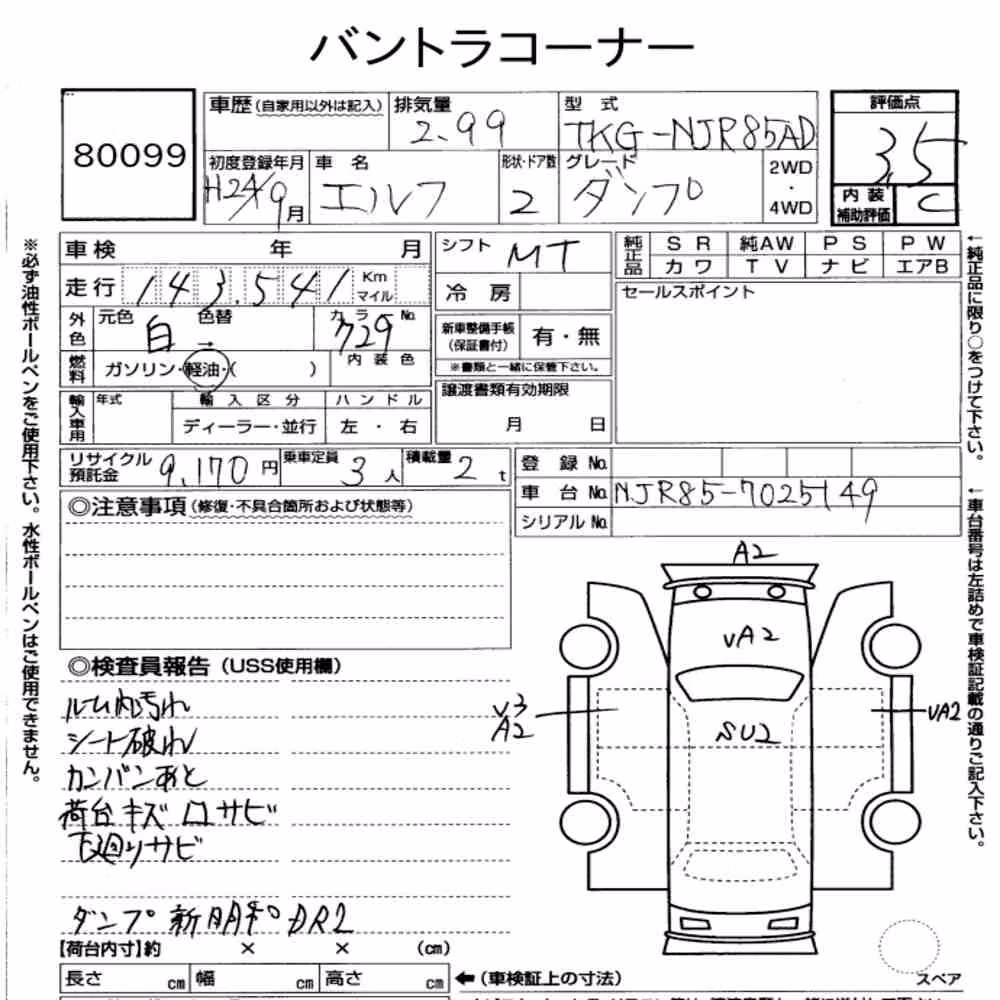 バントラコーナー
80099
車歴(自家用以外は記入) 排気量 2.99
型式 TKG-NJR85AD
評価点 3.5
初度登録年月 H24/9月
車名 エルフ
形状・ドア数 2
グレード ダンプ
2WD・4WD
内装補助評価 C
車検 年 月
シフト MT
純正品 SR 純AW PS PW
カワ TV ナビ エアB
走行 143.541 Km マイル
冷房
セールスポイント
外色 元色 白 → 色替 カラーNo. 729
新車整備手帳(保証書付) 有・無
※書類と一緒に保管下さい。
燃料 ガソリン・軽油・( ) 内装色
輸入車用 年式 輸入区分 ハンドル
ディーラー・並行 左・右
譲渡書類有効期限
月 日
リサイクル預託金 9,170円 乗車定員 3人 積載量 2t
登録No.
車台No. NJR85-7025149
シリアルNo.
◎注意事項(修復・不具合箇所および状態等)
◎検査員報告(USS使用欄)
ルーム内汚れ
シート破れ
カンバンあと
荷台キズ ロサビ
下廻りサビ
ダンプ 新明和 DR2
【荷台内寸】約 × × (cm)
長さ cm 幅 cm 高さ cm
←(車検証上の寸法)
A2
VA2
V3
A2
SU2
VA2
スペア
※必ず油性ボールペンをご使用下さい。水性ボールペンはご使用できません。
←純正品に限り○をつけて下さい。
←車台番号は左詰めで車検証記載の通りご記入下さい。